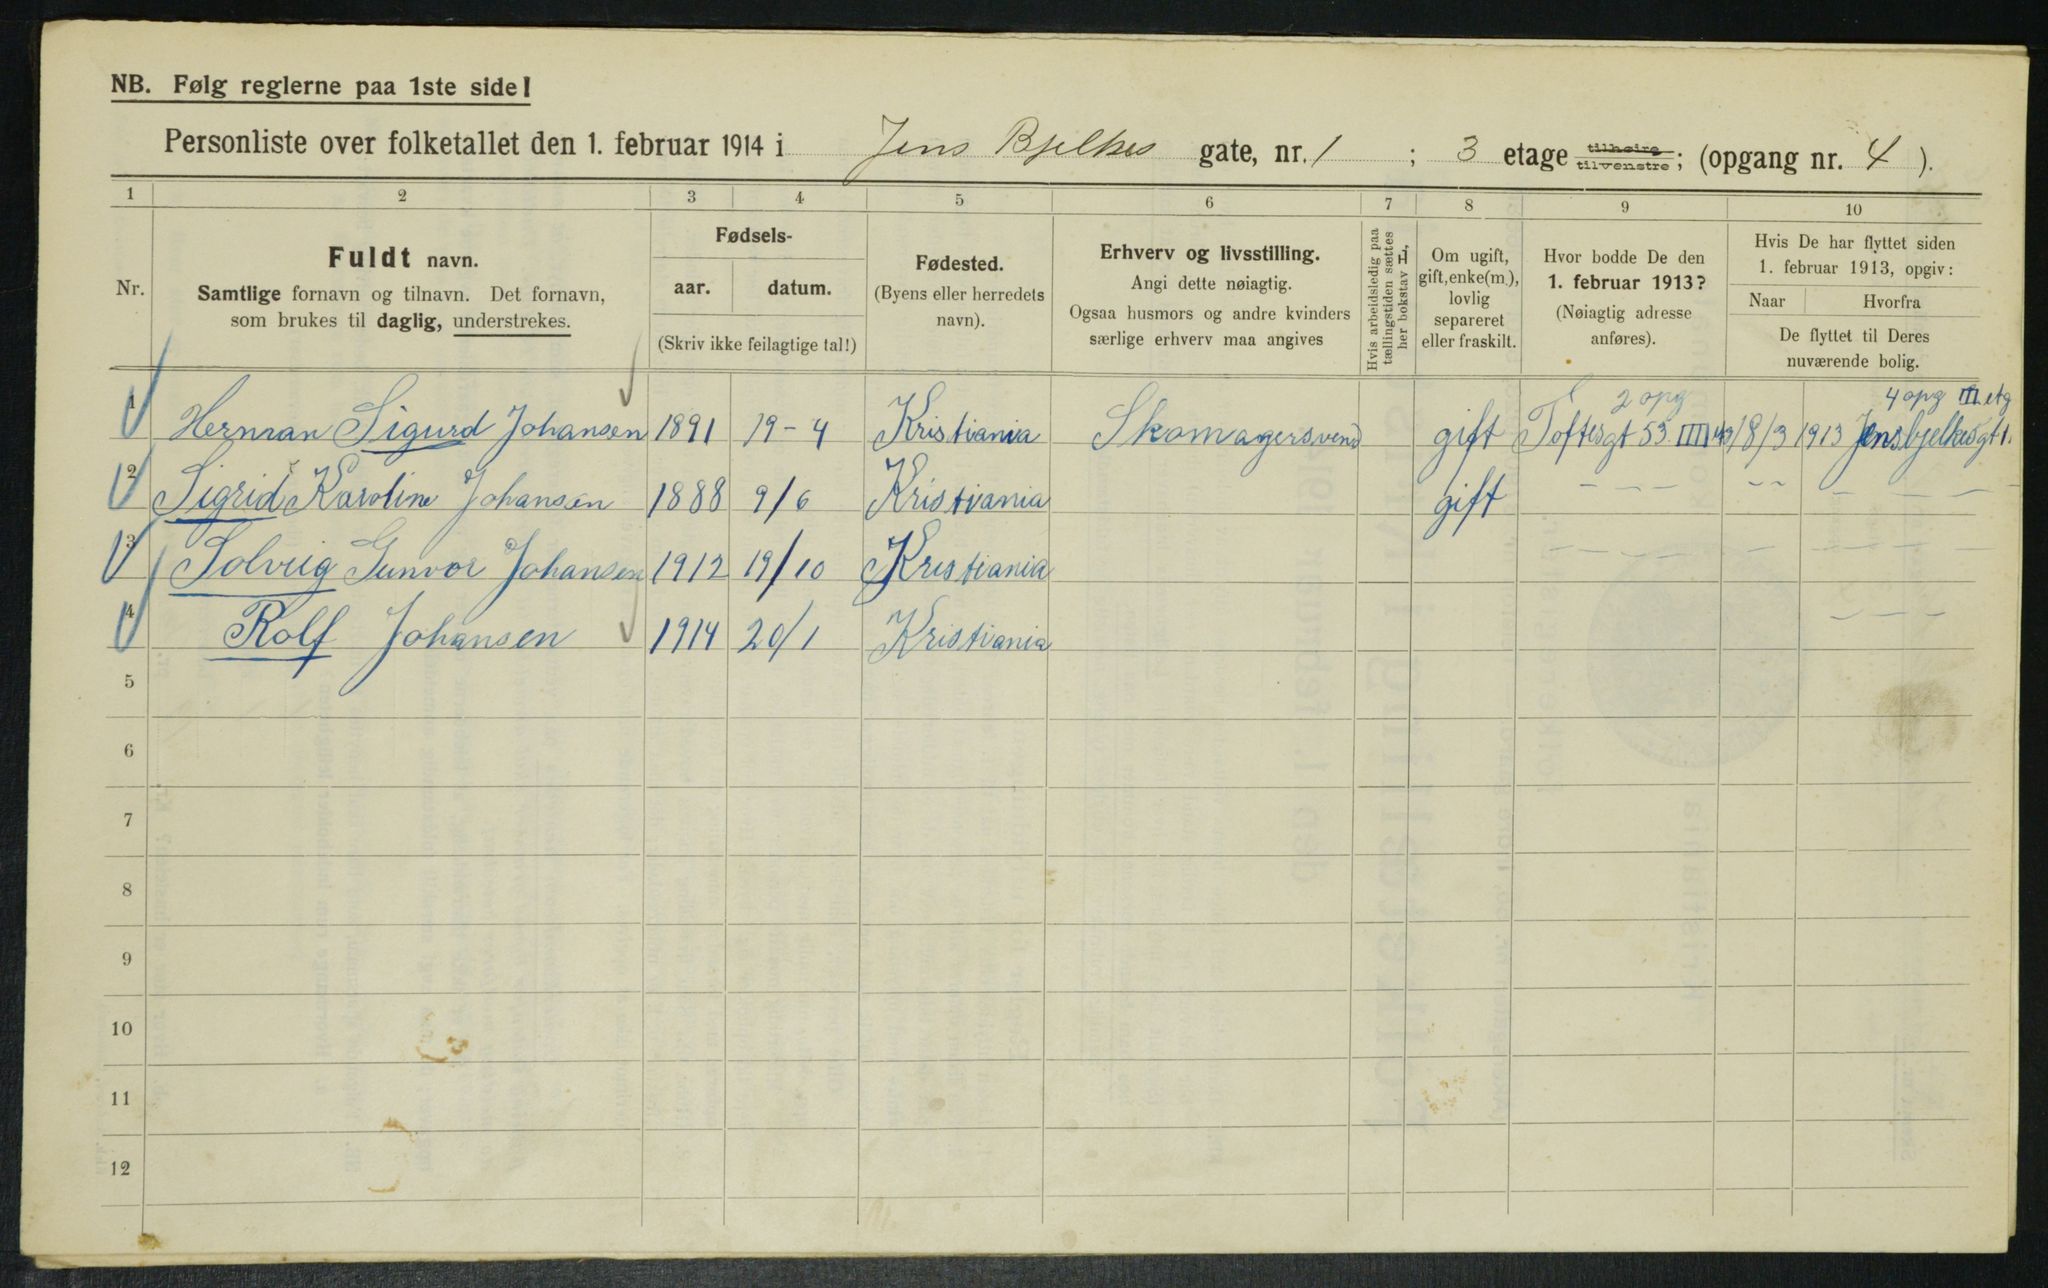 NB. Følg reglerne paa 1ste side!
Personliste over folketallet den 1. februar 1914 i Jens Bjelkes gate, nr. 1 ; 3 etage tilhøire tilvenstre ; (opgang nr. 4 ).
1 2 3 4 5 6 7 8 9 10
Nr.
Fuldt navn.
Samtlige fornavn og tilnavn. Det fornavn,
som brukes til daglig, understrekes.
Fødsels-
aar. datum.
(Skriv ikke feilagtige tal!)
Fødested.
(Byens eller herredets
navn).
Erhverv og livsstilling.
Angi dette nøiagtig.
Ogsaa husmors og andre kvinders
særlige erhverv maa angives
Hvis arbeidsledig paa
tællingstiden sættes
her bokstav L.
Om ugift,
gift, enke(m.),
lovlig
separeret
eller fraskilt.
Hvor bodde De den
1. februar 1913?
(Nøiagtig adresse
anføres).
Hvis De har flyttet siden
1. februar 1913, opgiv:
Naar Hvorfra
De flyttet til Deres
nuværende bolig.
2 opg 4 opg III etg
1 Herman Sigurd Johansen 1891 19-4 Kristiania Skomagersvend gift Toftesgt 53 IIII 18/3 1913 Jensbjelkesgt 1.
2 Sigrid Karoline Johansen 1888 9/6 Kristiania gift - - - - - - - - -
3 Solveig Gunvor Johansen 1912 19/10 Kristiania - - - - - - - - -
4 Rolf Johansen 1914 20/1 Kristiania - - -
5
6
7
8
9
10
11
12